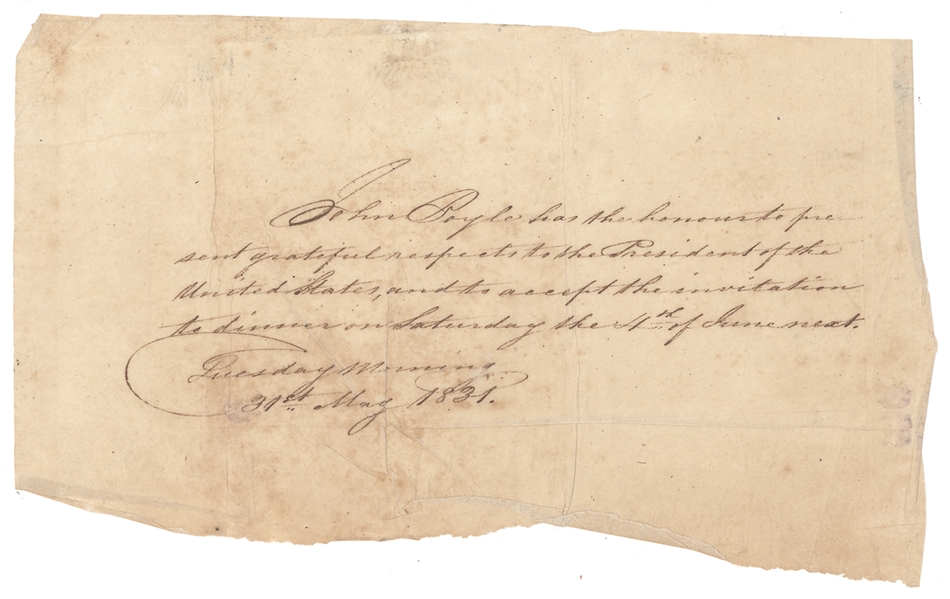 John Boyle has the honour to pre-
sent grateful respects to the President of the
United States, and to accept the invitation
to dinner on Saturday the 4th. of June next.
Tuesday Morning
31st. May 1831.